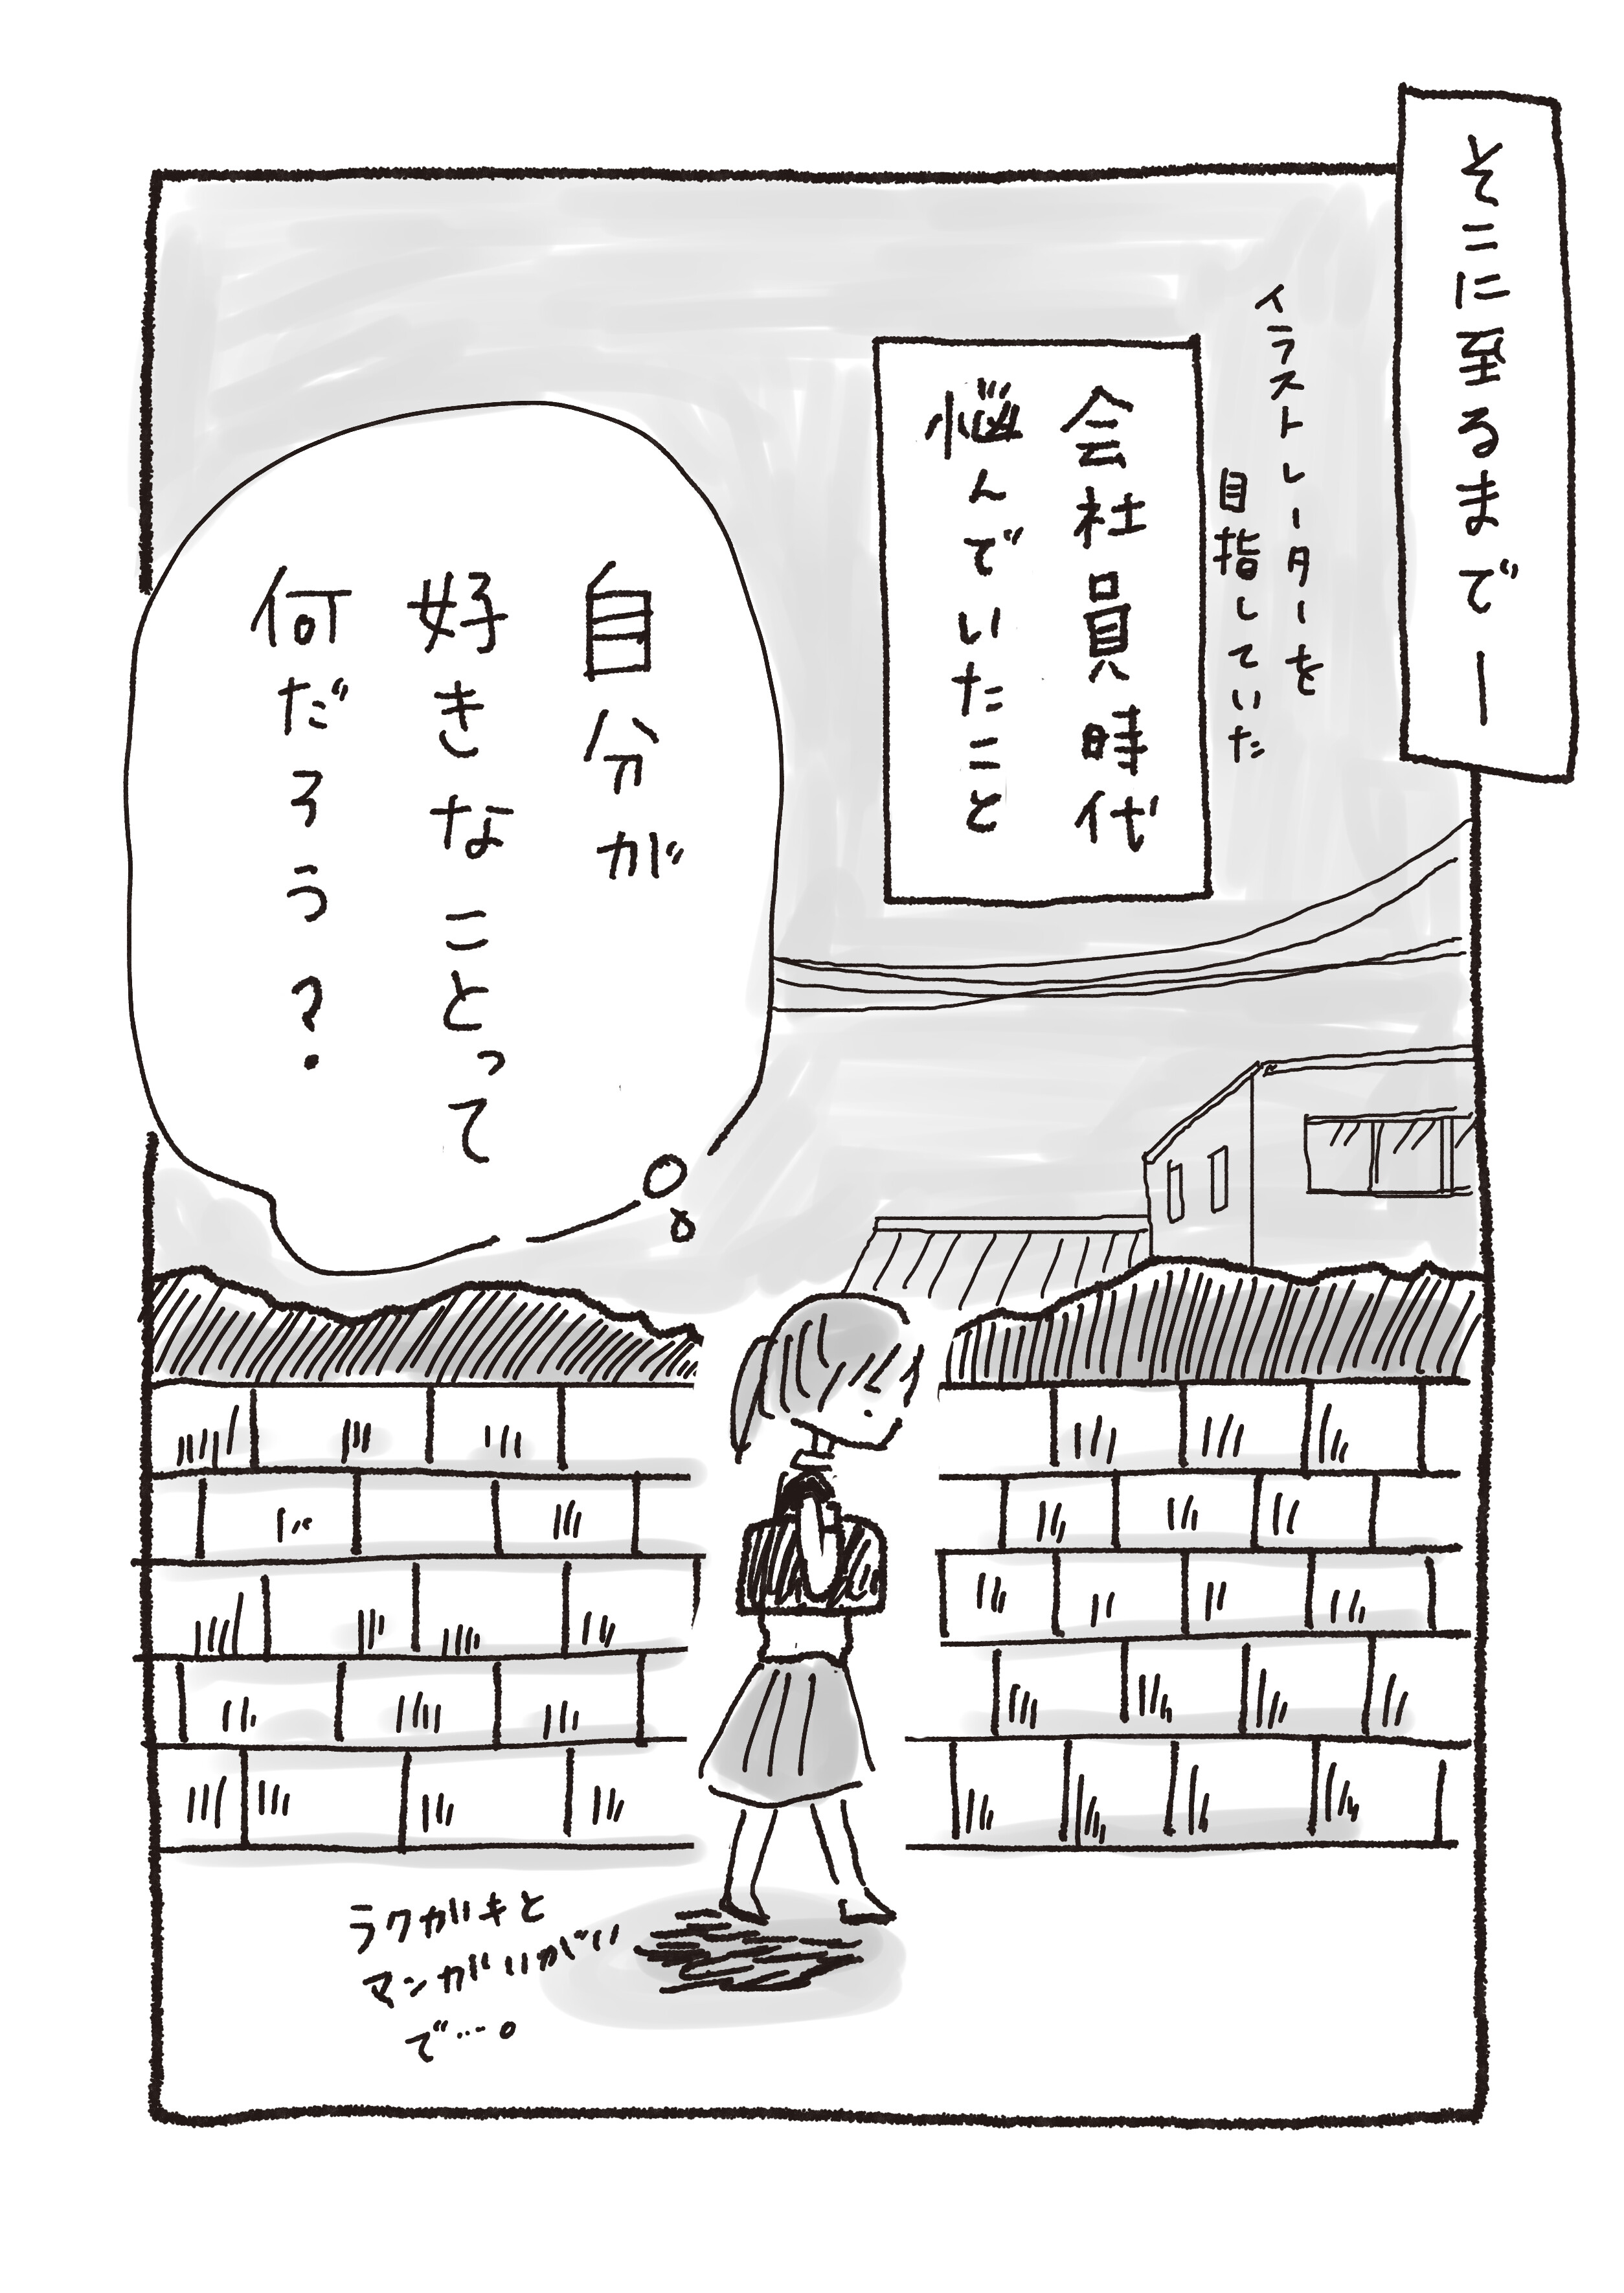 そこに至るまで―
イラストレーターを
目指していた
会社員時代
悩んでいたこと
自分が
好きなことって
何だろう？
ラクガキと
マンガいがい
で…。